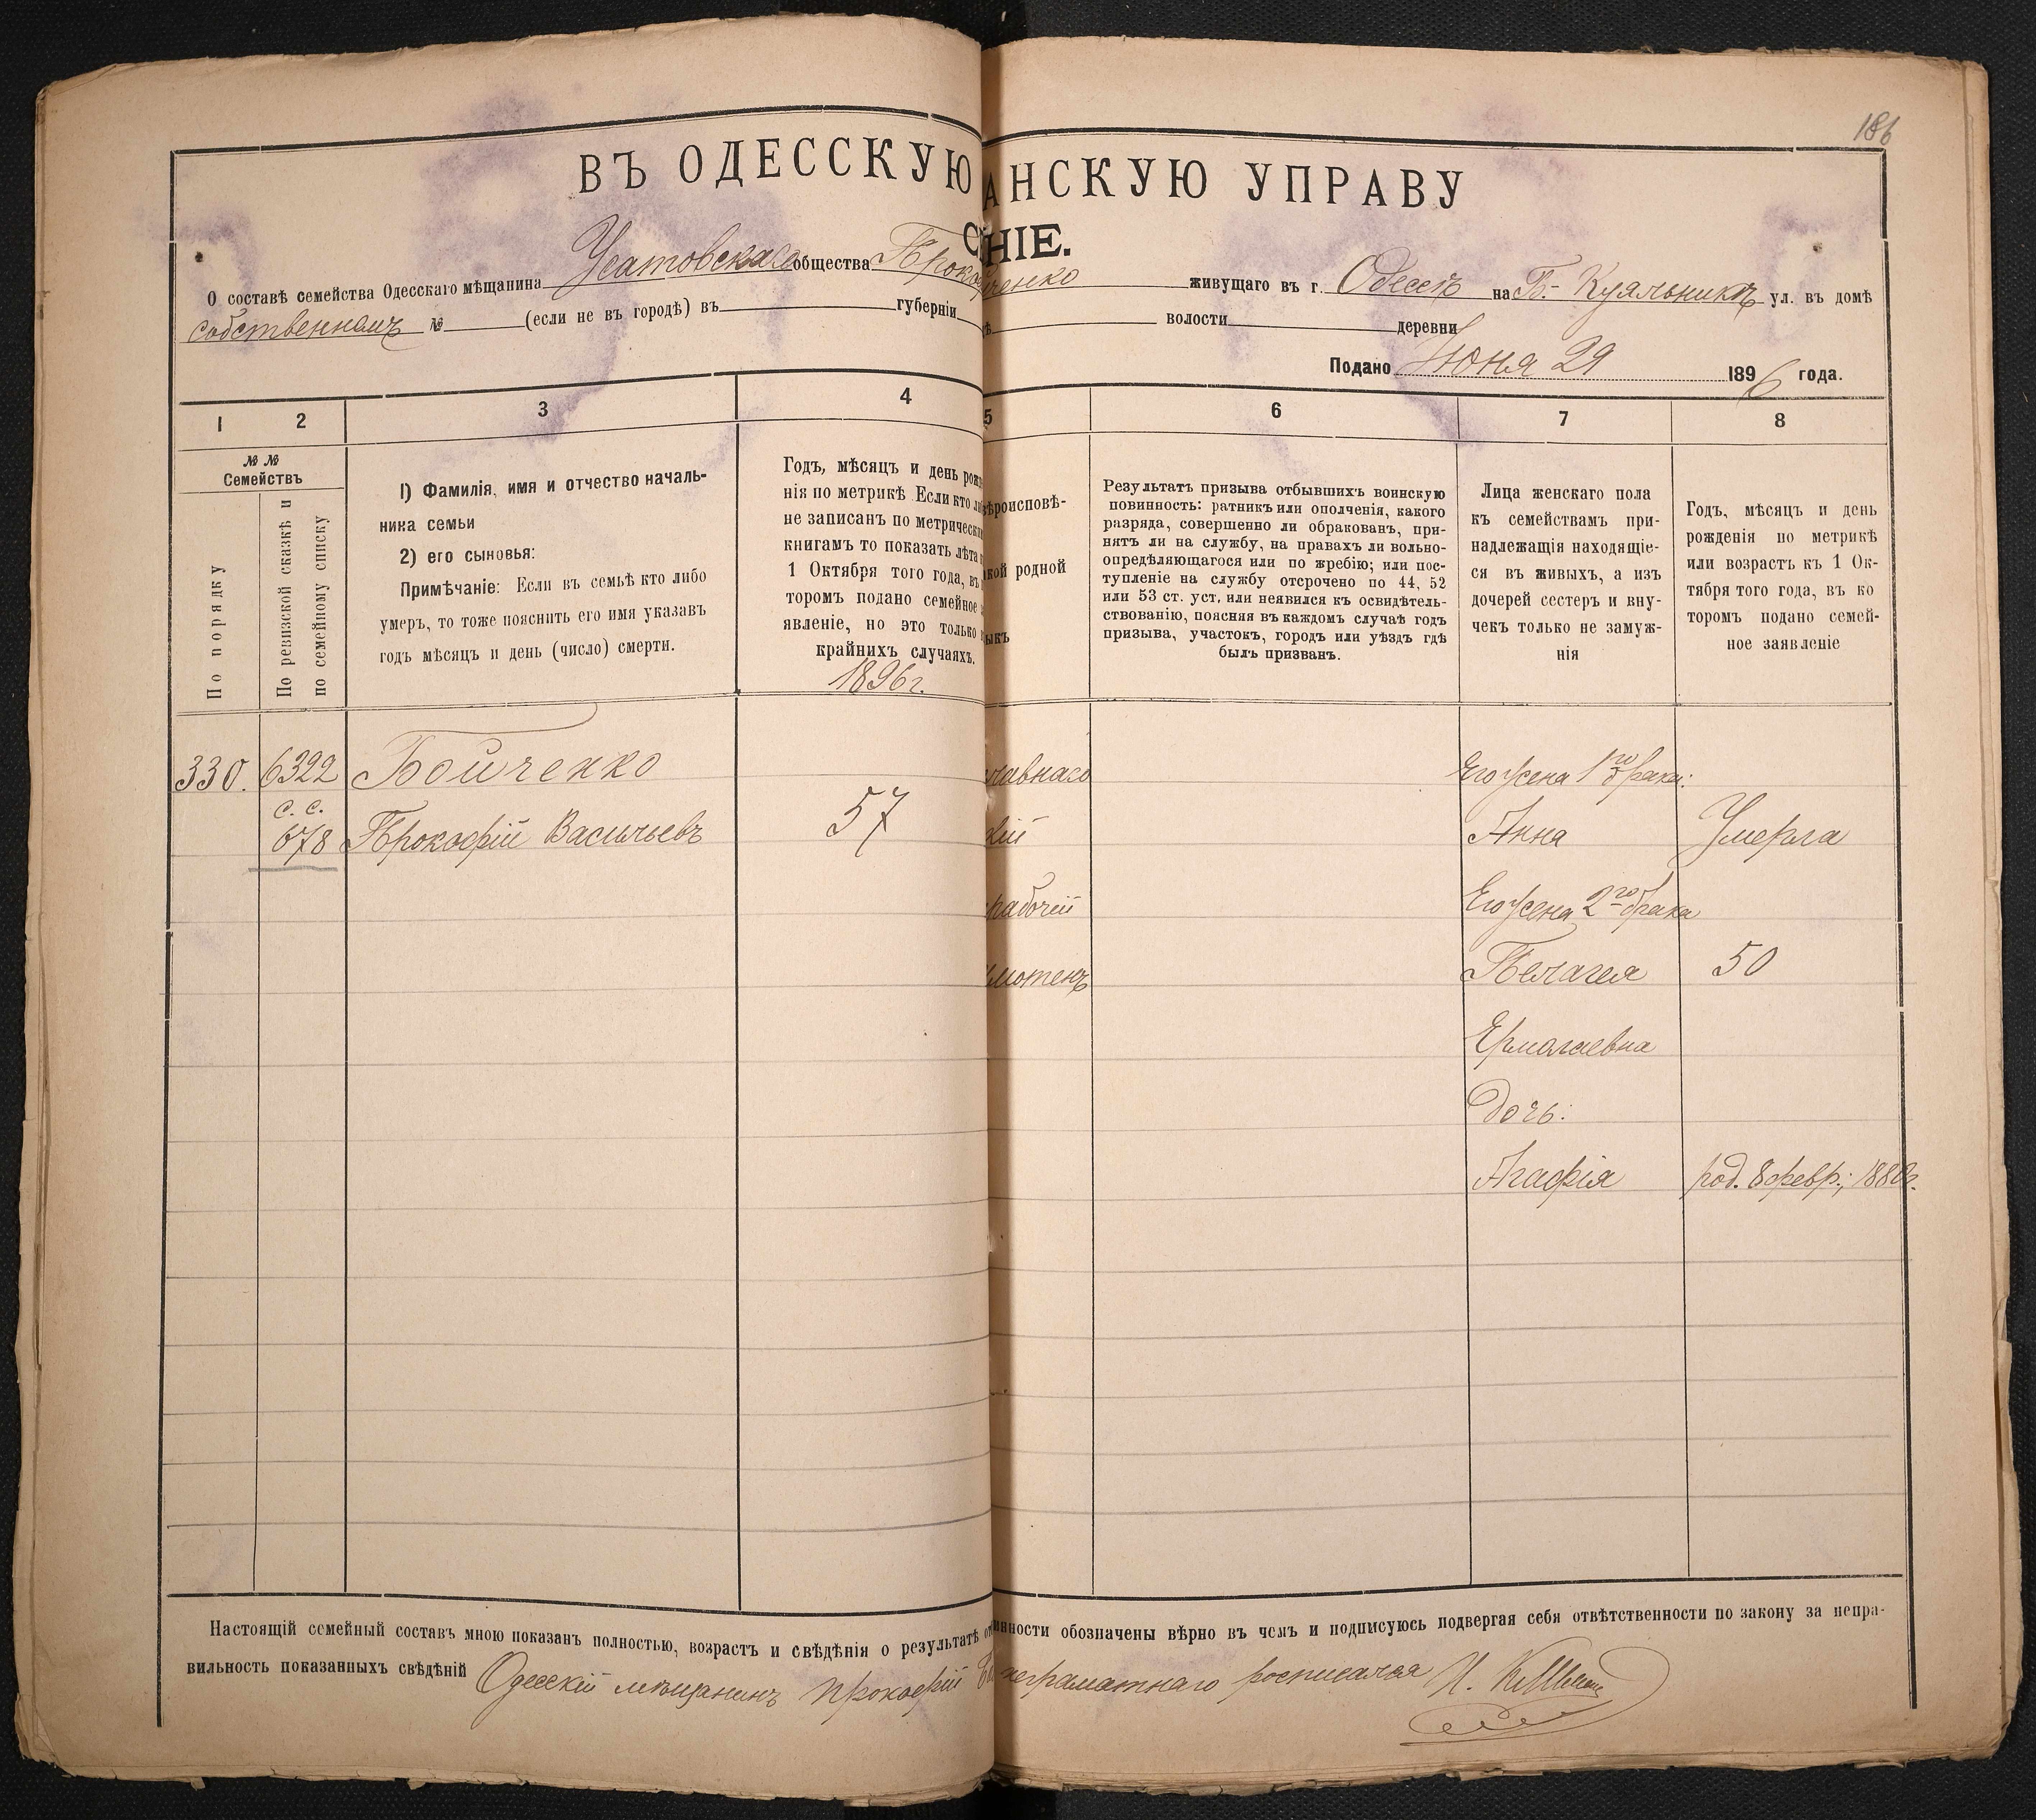 186
ВЪ ОДЕССКУЮ АНСКУЮ УПРАВУ
НІЕ.
О составѣ семейства Одесскаго мѣщанина Усатовскаго общества Проко ченко живущаго въ г. Одессѣ на Б. Куяльникѣ ул. въ домѣ
собственномъ № (если не въ городѣ) въ губерніи волости деревни
Подано Июня 29 1896 года.
1 2 3 4 5 6 7 8
№ №
Семействъ
По порядку
По ревизской сказкѣ и
по семейному списку
1) Фамилія, имя и отчество началь-
ника семьи
2) его сыновья:
Примѣчаніе: Если въ семьѣ кто либо
умеръ, то тоже пояснить его имя указавъ
годъ мѣсяцъ и день (число) смерти.
Годъ, мѣсяцъ и день рож
нія по метрикѣ Если кто ли
не записанъ по метрически
книгамъ то показать лѣта
1 Октября того года, въ
торомъ подано семейное
явленіе, но это только
крайнихъ случаяхъ.
1896 г.
ѣроисповѣ-
кой родной
ыкъ
Результатъ призыва отбывшихъ воинскую
повинность: ратникъ или ополченія, какого
разряда, совершенно ли обракованъ, при-
нятъ ли на службу, на правахъ ли вольно-
опредѣляющагося или по жребію; или пос-
тупленіе на службу отсрочено по 44, 52
или 53 ст. уст, или неявился къ освидѣтель-
ствованію, поясняя въ каждомъ случаѣ годъ
призыва, участокъ, городъ или уѣздъ гдѣ
былъ призванъ.
Лица женскаго пола
къ семействамъ при-
надлежащія находящіе-
ся въ живыхъ, а изъ
дочерей сестеръ и вну-
чекъ только не замуж-
нія
Годъ, мѣсяцъ и день
рожденія по метрикѣ
или возрастъ къ 1 Ок-
тября того года, въ ко
торомъ подано семей-
ное заявленіе
330. 6322 Бойченко славнаго Его жена 1го брака:
с. с.
678 Прокофій Васильевъ 57 кій Анна Умерла
рабочій Его жена 2го брака
мотенъ Пелагея 50
Ермолаевна
Дочь:
Агафія род. 8 февр., 1880 г.
Настоящій семейный составъ мною показанъ полностью, возрастъ и свѣдѣнія о результатѣ от инности обозначены вѣрно въ чемъ и подписуюсь подвергая себя отвѣтственности по закону за непра-
вильность показанныхъ свѣдѣній Одесскій мѣщанинъ Прокофій Бо неграмотнаго росписался